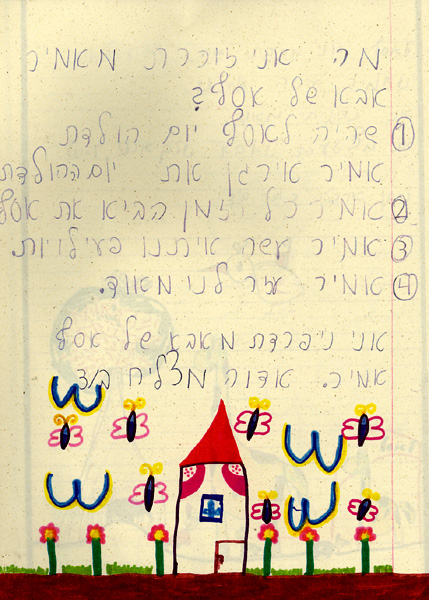 מה אני זוכרת מאמיר
אבא של אסף?
① שהיה לאסף יום הולדת
אמיר אירגן את יום ההולדת
② אמיר כל הזמן הביא את אסף
③ אמיר עשה איתנו פעילויות
④ אמיר עזר לנו מאווד.
אני ניפרדת מאבא של אסף
אמיר.